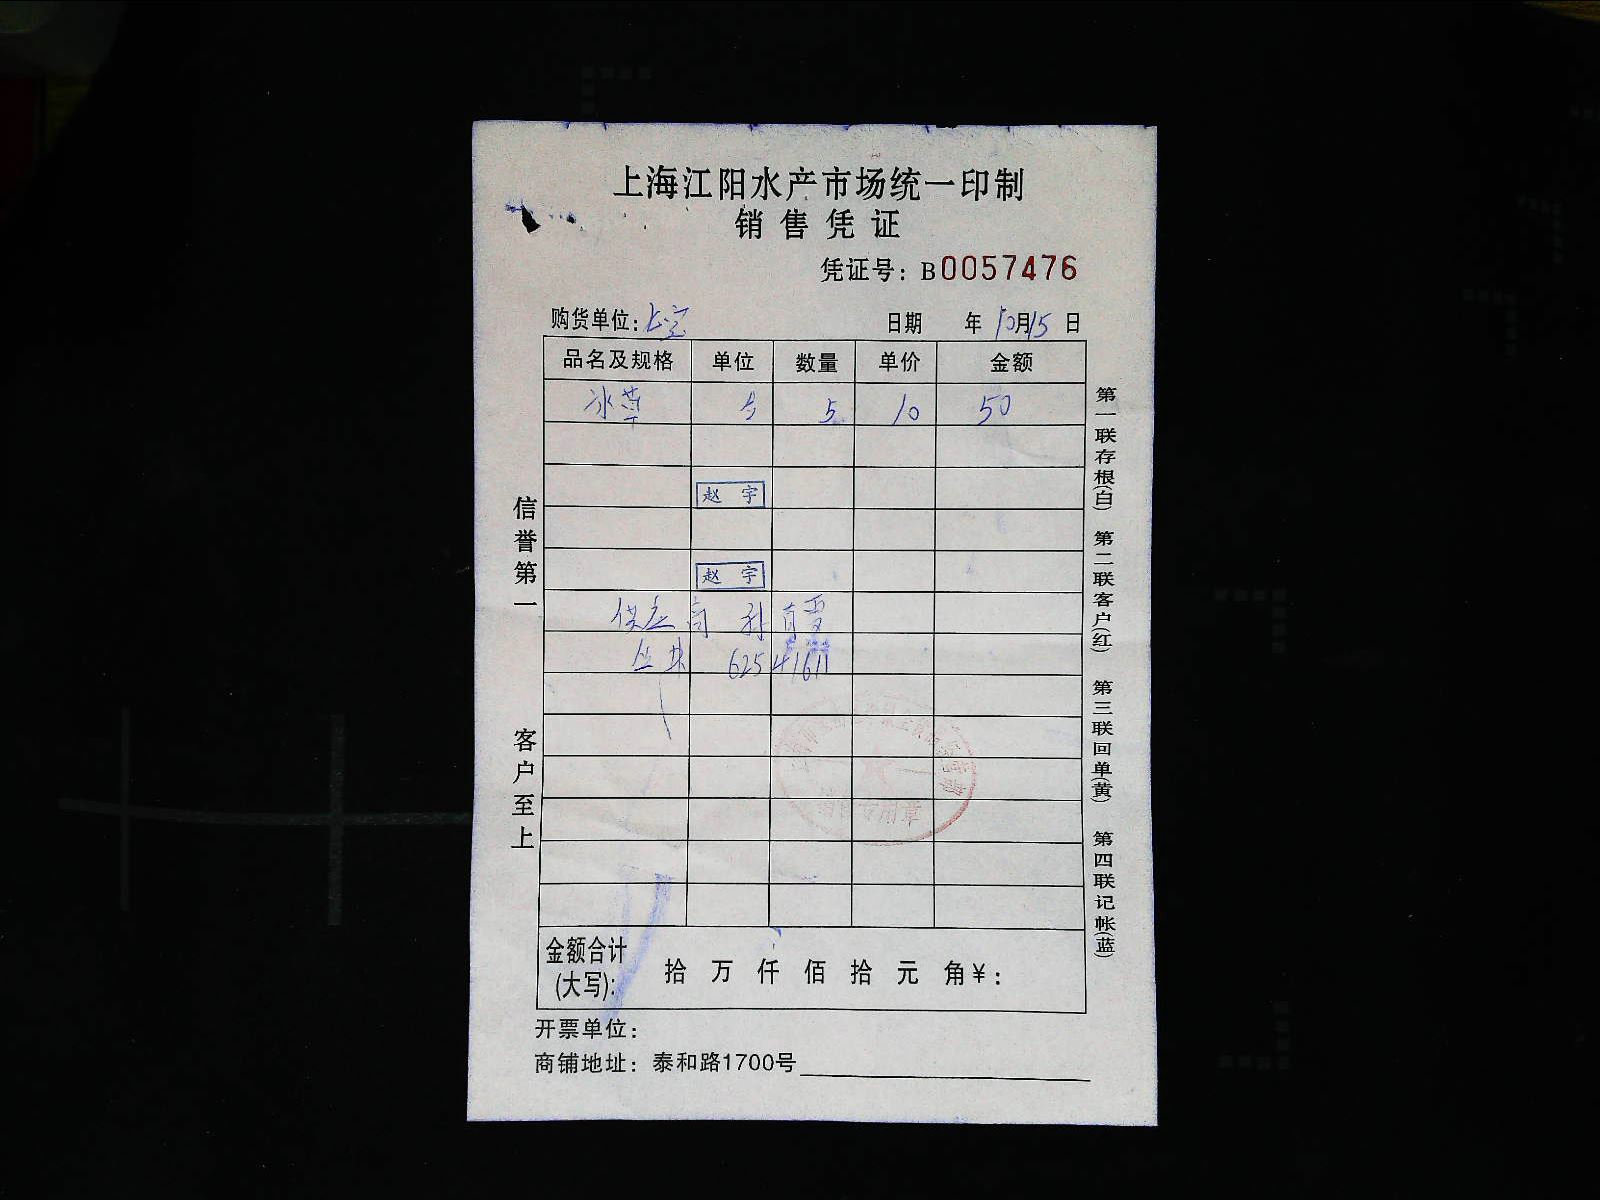 上海江阳水产市场统一印制
销售凭证
凭证号：B0057476
购货单位：上宝 日期 年 10月15日
品名及规格 单位 数量 单价 金额
冰草 斤 5 10 50
赵宇
赵宇
供应商 孙
62541611
信誉第一 客户至上
第一联存根(白) 第二联客户(红) 第三联回单(黄) 第四联记帐(蓝)
金额合计(大写)： 拾 万 仟 佰 拾 元 角 ¥：
开票单位：
商铺地址：泰和路1700号